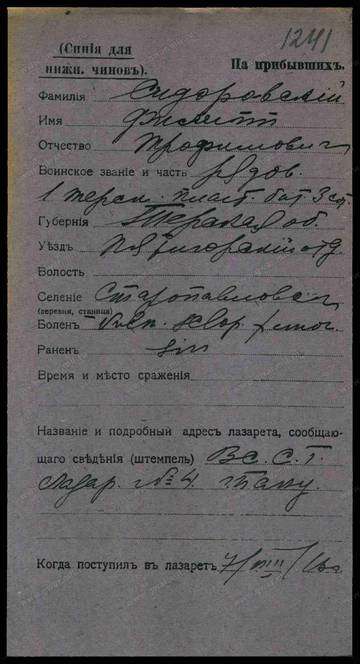 1241
(Синія для
нижн. чиновъ).
На прибывшихъ.
Фамилія Сидоровскій
Имя Филиппъ
Отчество Трофимович
Воинское званіе и часть рядов.
1 терск. пласт. бат. 3 сот.
Губернія Терская об.
Уѣздъ Пятигорскій отд
Волость
Селеніе Старопавловск
(деревня, станица)
Боленъ Vuln. sclop.
Раненъ sin
Время и мѣсто сраженія
Названіе и подробный адресъ лазарета, сообщаю-
щаго свѣдѣнія (штемпель) В. С. Г.
Лазар. № 4.
Когда поступилъ въ лазаретъ 7/VIII/16г